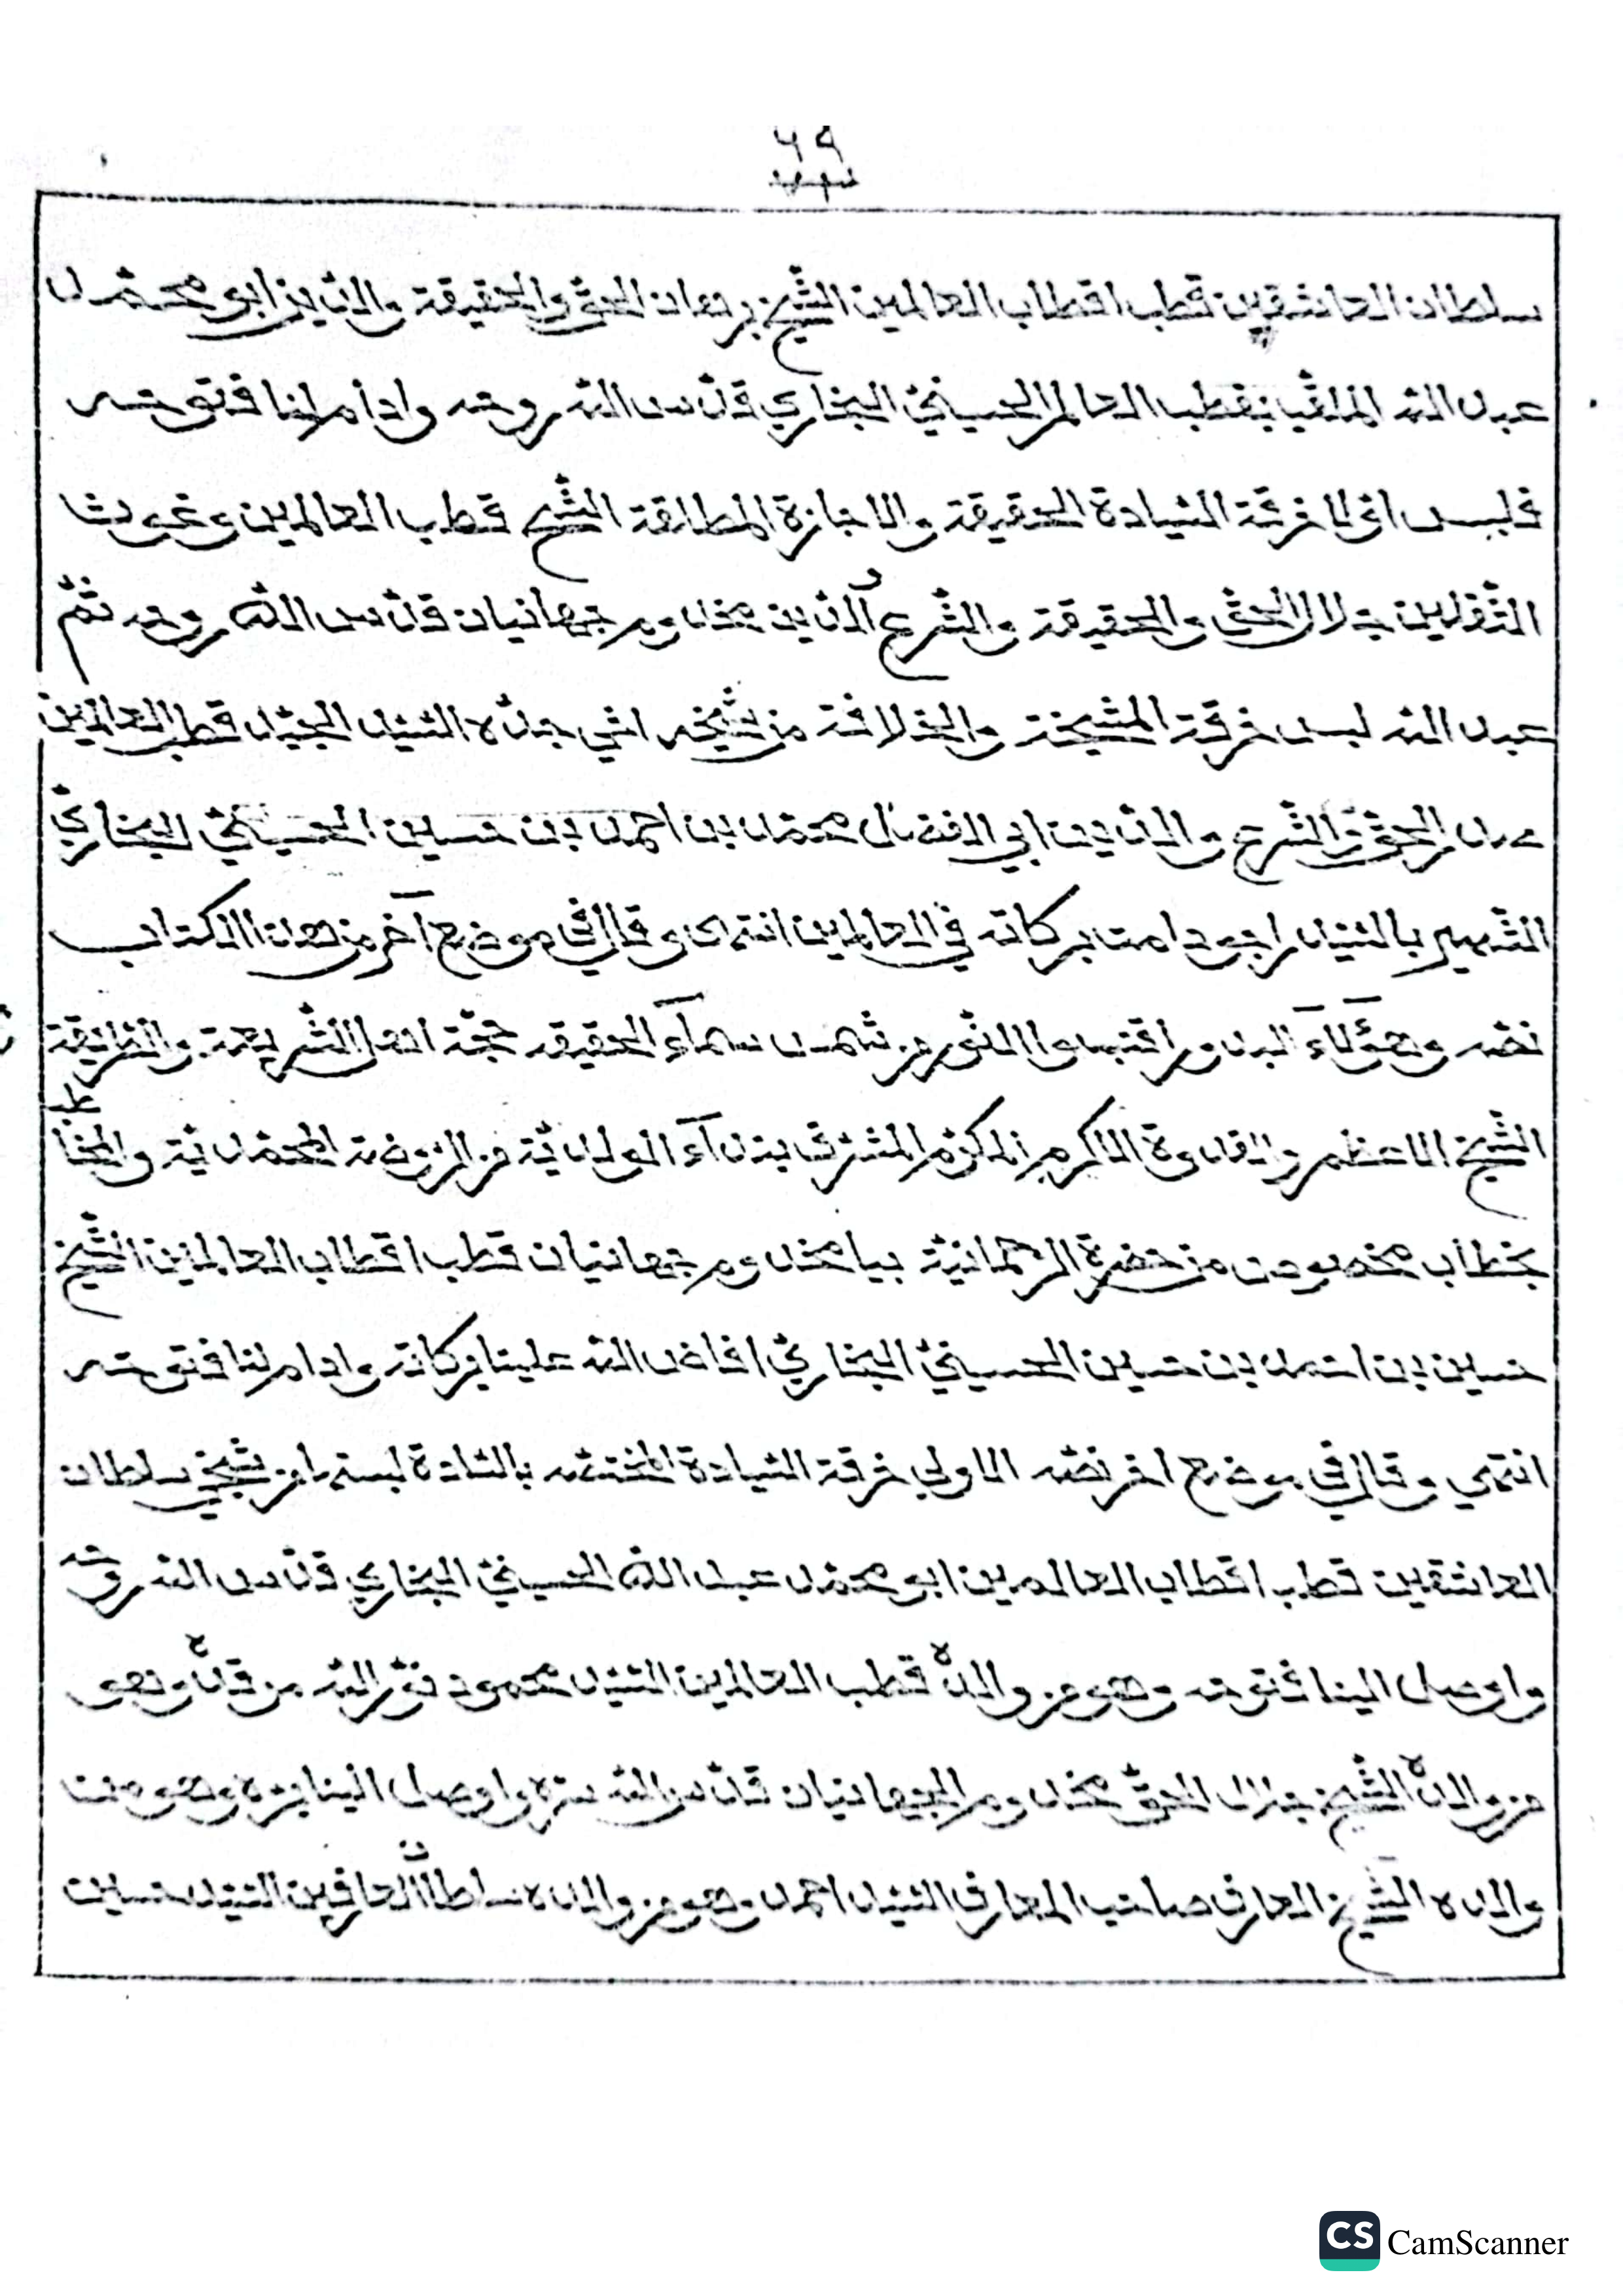 ٦٩
سلطان العاشقين قطب اقطاب العالمين الشيخ برهان الحق والحقيقة والدين ابو محمد
عبد الله الملقب بقطب العالم الحسيني البخاري قدس الله روحه وادام لنا فتوحه
فلبس خرقة السيادة الحقيقة والاجازة المطلقة الشيخ قطب العالمين وغوث
الثقلين جلال الحق والحقيقة والشرع والدين مخدوم جهانيان قدس الله روحه ثم
عبد الله لبس خرقة المشيخة والخلافة من شيخه اخي جده السيد الجيد قطب العالمين
صدر الحق والشرع والدين ابي الفضل محمد بن احمد بن حسين الحسيني البخاري
الشهير بالسيد راجو دامت بركاته في العالمين انتهى وقال في موضع آخر من هذا الكتاب
نصه وهؤلاء البدور اقتبسوا النور من شمس سماء الحقيقه حجة اهل الشريعة والطريقة
الشيخ الاعظم والقدوة الاكرم المكرم المشرف بنداء الولدية من الروضة المحمدية والمخاطب
بخطاب مخصوص من حضرة الرحمانية بيا مخدوم جهانيان قطب اقطاب العالمين الشيخ
حسين بن احمد بن حسين الحسيني البخاري افاض الله علينا بركاته وادام لنا فتوحه
انتهى وقال في موضع اخر نصه الاولى خرقة السيادة المختصه بالسادة لبستها من شيخي سلطان
العاشقين قطب اقطاب العالمين ابو محمد عبد الله الحسيني البخاري قدس الله روحه
واوصل الينا فتوحه وهو من والده قطب العالمين السيد محمود نور الله مرقده وهو
من والده الشيخ جلال الحق مخدوم الجهانيان قدس الله سره واوصل الينا بره وهو من
والده الشيخ العارف صاحب المعارف السيد احمد وهو من والده سلطان العارفين السيد حسين
CS CamScanner